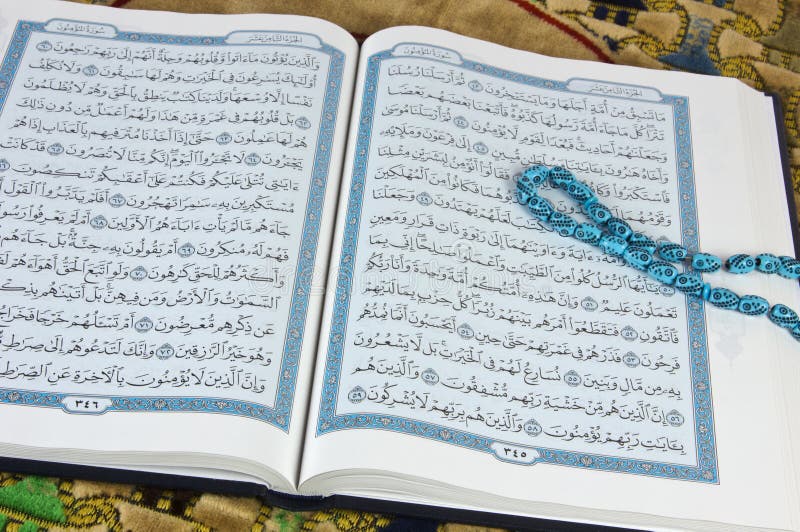 سورة المؤمنون
الجزء الثامن عشر
مَا تَسْبِقُ مِنْ أُمَّةٍ أَجَلَهَا وَمَا يَسْتَـْٔخِرُونَ ٤٣ ثُمَّ أَرْسَلْنَا رُسُلَنَا
تَتْرَا كُلَّ مَا جَآءَ أُمَّةً رَّسُولُهَا كَذَّبُوهُ فَأَتْبَعْنَا بَعْضَهُم بَعْضًا
وَجَعَلْنَٰهُمْ أَحَادِيثَ فَبُعْدًا لِّقَوْمٍ لَّا يُؤْمِنُونَ ٤٤ ثُمَّ أَرْسَلْنَا مُوسَىٰ
وَأَخَاهُ هَٰرُونَ بِـَٔايَٰتِنَا وَسُلْطَٰنٍ مُّبِينٍ ٤٥ إِلَىٰ فِرْعَوْنَ وَمَلَإِي۟هِۦ
فَٱسْتَكْبَرُوا۟ وَكَانُوا۟ قَوْمًا عَالِينَ ٤٦ فَقَالُوٓا۟ أَنُؤْمِنُ لِبَشَرَيْنِ مِثْلِنَا
وَقَوْمُهُمَا فَكَذَّبُوهُمَا فَكَانُوا۟ مِنَ ٱلْمُهْلَكِينَ
وَلَقَدْ ءَاتَيْنَا مُوسَى ٱلْكِتَٰبَ لَعَلَّهُمْ يَهْتَدُونَ ٤٩ وَجَعَلْنَا
ٱبْنَ مَرْيَمَ وَأُمَّهُۥٓ ءَايَةً وَءَاوَيْنَٰهُمَآ إِلَىٰ رَبْوَةٍ ذَاتِ قَرَارٍ وَمَعِينٍ
يَٰٓأَيُّهَا ٱلرُّسُلُ كُلُوا۟ مِنَ ٱلطَّيِّبَٰتِ وَٱعْمَلُوا۟ صَٰلِحًا إِنِّى بِمَا
تَعْمَلُونَ عَلِيمٌ ٥١ وَإِنَّ هَٰذِهِۦٓ أُمَّتُكُمْ أُمَّةً وَٰحِدَةً وَأَنَا۠ رَبُّكُمْ
فَٱتَّقُونِ ٥٢ فَتَقَطَّعُوٓا۟ أَمْرَهُم بَيْنَهُمْ زُبُرًا كُلُّ حِزْبٍۭ بِمَا لَدَيْهِمْ
فَرِحُونَ ٥٣ فَذَرْهُمْ فِى غَمْرَتِهِمْ حَتَّىٰ حِينٍ ٥٤ أَيَحْسَبُونَ أَنَّمَا نُمِدُّهُم
بِهِۦ مِن مَّالٍ وَبَنِينَ ٥٥ نُسَارِعُ لَهُمْ فِى ٱلْخَيْرَٰتِ بَل لَّا يَشْعُرُونَ
٥٦ إِنَّ ٱلَّذِينَ هُم مِّنْ خَشْيَةِ رَبِّهِم مُّشْفِقُونَ ٥٧ وَٱلَّذِينَ هُم
بِـَٔايَٰتِ رَبِّهِمْ يُؤْمِنُونَ ٥٨ وَٱلَّذِينَ هُم بِرَبِّهِمْ لَا يُشْرِكُونَ ٥٩
٣٤٥
الجزء الثامن عشر
سورة المؤمنون
وَٱلَّذِينَ يُؤْتُونَ مَآ ءَاتَوا۟ وَّقُلُوبُهُمْ وَجِلَةٌ أَنَّهُمْ إِلَىٰ رَبِّهِمْ رَٰجِعُونَ ٦٠
أُو۟لَٰٓئِكَ يُسَٰرِعُونَ فِى ٱلْخَيْرَٰتِ وَهُمْ لَهَا سَٰبِقُونَ ٦١ وَلَا نُكَلِّفُ
نَفْسًا إِلَّا وُسْعَهَا وَلَدَيْنَا كِتَٰبٌ يَنطِقُ بِٱلْحَقِّ وَهُمْ لَا يُظْلَمُونَ
٦٢ بَلْ قُلُوبُهُمْ فِى غَمْرَةٍ مِّنْ هَٰذَا وَلَهُمْ أَعْمَٰلٌ مِّن دُونِ ذَٰلِكَ
هُمْ لَهَا عَٰمِلُونَ ٦٣ حَتَّىٰٓ إِذَآ أَخَذْنَا مُتْرَفِيهِم بِٱلْعَذَابِ إِذَا هُمْ
يَجْـَٔرُونَ ٦٤ لَا تَجْـَٔرُوا۟ ٱلْيَوْمَ إِنَّكُم مِّنَّا لَا تُنصَرُونَ ٦٥ قَدْ كَانَتْ
ءَايَٰتِى تُتْلَىٰ عَلَيْكُمْ فَكُنتُمْ عَلَىٰٓ أَعْقَٰبِكُمْ تَنكِصُونَ ٦٦
مُسْتَكْبِرِينَ بِهِۦ سَٰمِرًا تَهْجُرُونَ ٦٧ أَفَلَمْ يَدَّبَّرُوا۟ ٱلْقَوْلَ
أَمْ جَآءَهُم مَّا لَمْ يَأْتِ ءَابَآءَهُمُ ٱلْأَوَّلِينَ ٦٨ أَمْ لَمْ يَعْرِفُوا۟ رَسُولَهُمْ
فَهُمْ لَهُۥ مُنكِرُونَ ٦٩ أَمْ يَقُولُونَ بِهِۦ جِنَّةٌۢ بَلْ جَآءَهُم
بِٱلْحَقِّ وَأَكْثَرُهُمْ لِلْحَقِّ كَٰرِهُونَ ٧٠ وَلَوِ ٱتَّبَعَ ٱلْحَقُّ أَهْوَآءَهُمْ
لَفَسَدَتِ ٱلسَّمَٰوَٰتُ وَٱلْأَرْضُ وَمَن فِيهِنَّ بَلْ أَتَيْنَٰهُم بِذِكْرِهِمْ
فَهُمْ عَن ذِكْرِهِم مُّعْرِضُونَ ٧١ أَمْ تَسْـَٔلُهُمْ خَرْجًا فَخَرَاجُ رَبِّكَ خَيْرٌ
وَهُوَ خَيْرُ ٱلرَّٰزِقِينَ ٧٢ وَإِنَّكَ لَتَدْعُوهُمْ إِلَىٰ صِرَٰطٍ مُّسْتَقِيمٍ
٧٣ وَإِنَّ ٱلَّذِينَ لَا يُؤْمِنُونَ بِٱلْـَٔاخِرَةِ عَنِ ٱلصِّرَٰطِ
٣٤٦